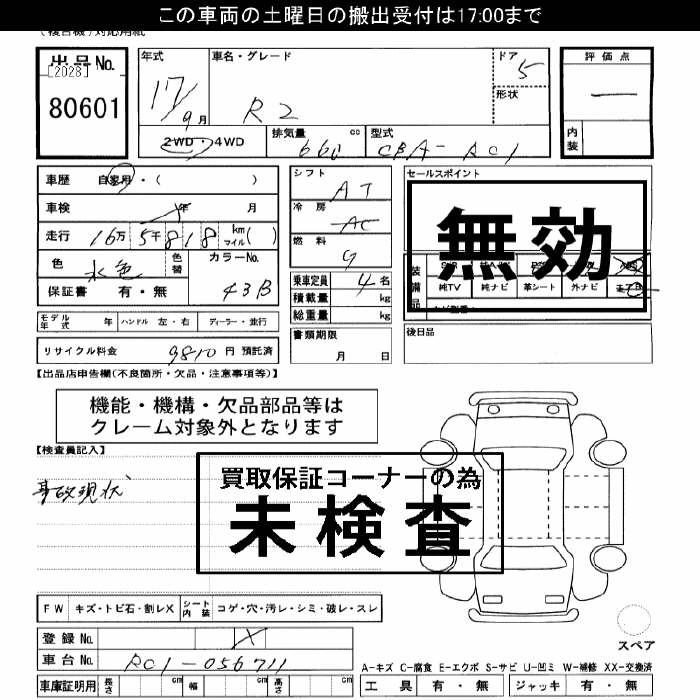 この車両の土曜日の搬出受付は17:00まで
出品No.
[2028]
80601
年式
17/9月
車名・グレード
R2
ドア
5
形状
評価点
内装
2WD・4WD
排気量
660
cc
型式
CBA-RC1
車歴 自家用・( )
車検 年 月
走行 16万 5千 818 km マイル( )
色 水色
色替
カラーNo.
43B
保証書 有・無
シフト
AT
冷房
AC
燃料
G
乗車定員 4名
積載量 kg
総重量 kg
書類期限
月 日
セールスポイント
無効
装備品
純TV 純ナビ 革シート 外ナビ
後日品
モデル年式 年 ハンドル 左・右 ディーラー・並行
リサイクル料金 9810 円 預託済
【出品店申告欄(不良箇所・欠品・注意事項等)】
機能・機構・欠品部品等は
クレーム対象外となります
【検査員記入】
事故現状
買取保証コーナーの為
未検査
FW キズ・トビ石・割レX シート内装 コゲ・穴・汚レ・シミ・破レ・スレ
登録No.
車台No. RC1-056711
車庫証明用 長さ cm 幅 cm 高さ cm
スペア
A-キズ C-腐食 E-エクボ S-サビ U-凹ミ W-補修 XX-交換済
工具 有・無 ジャッキ 有・無